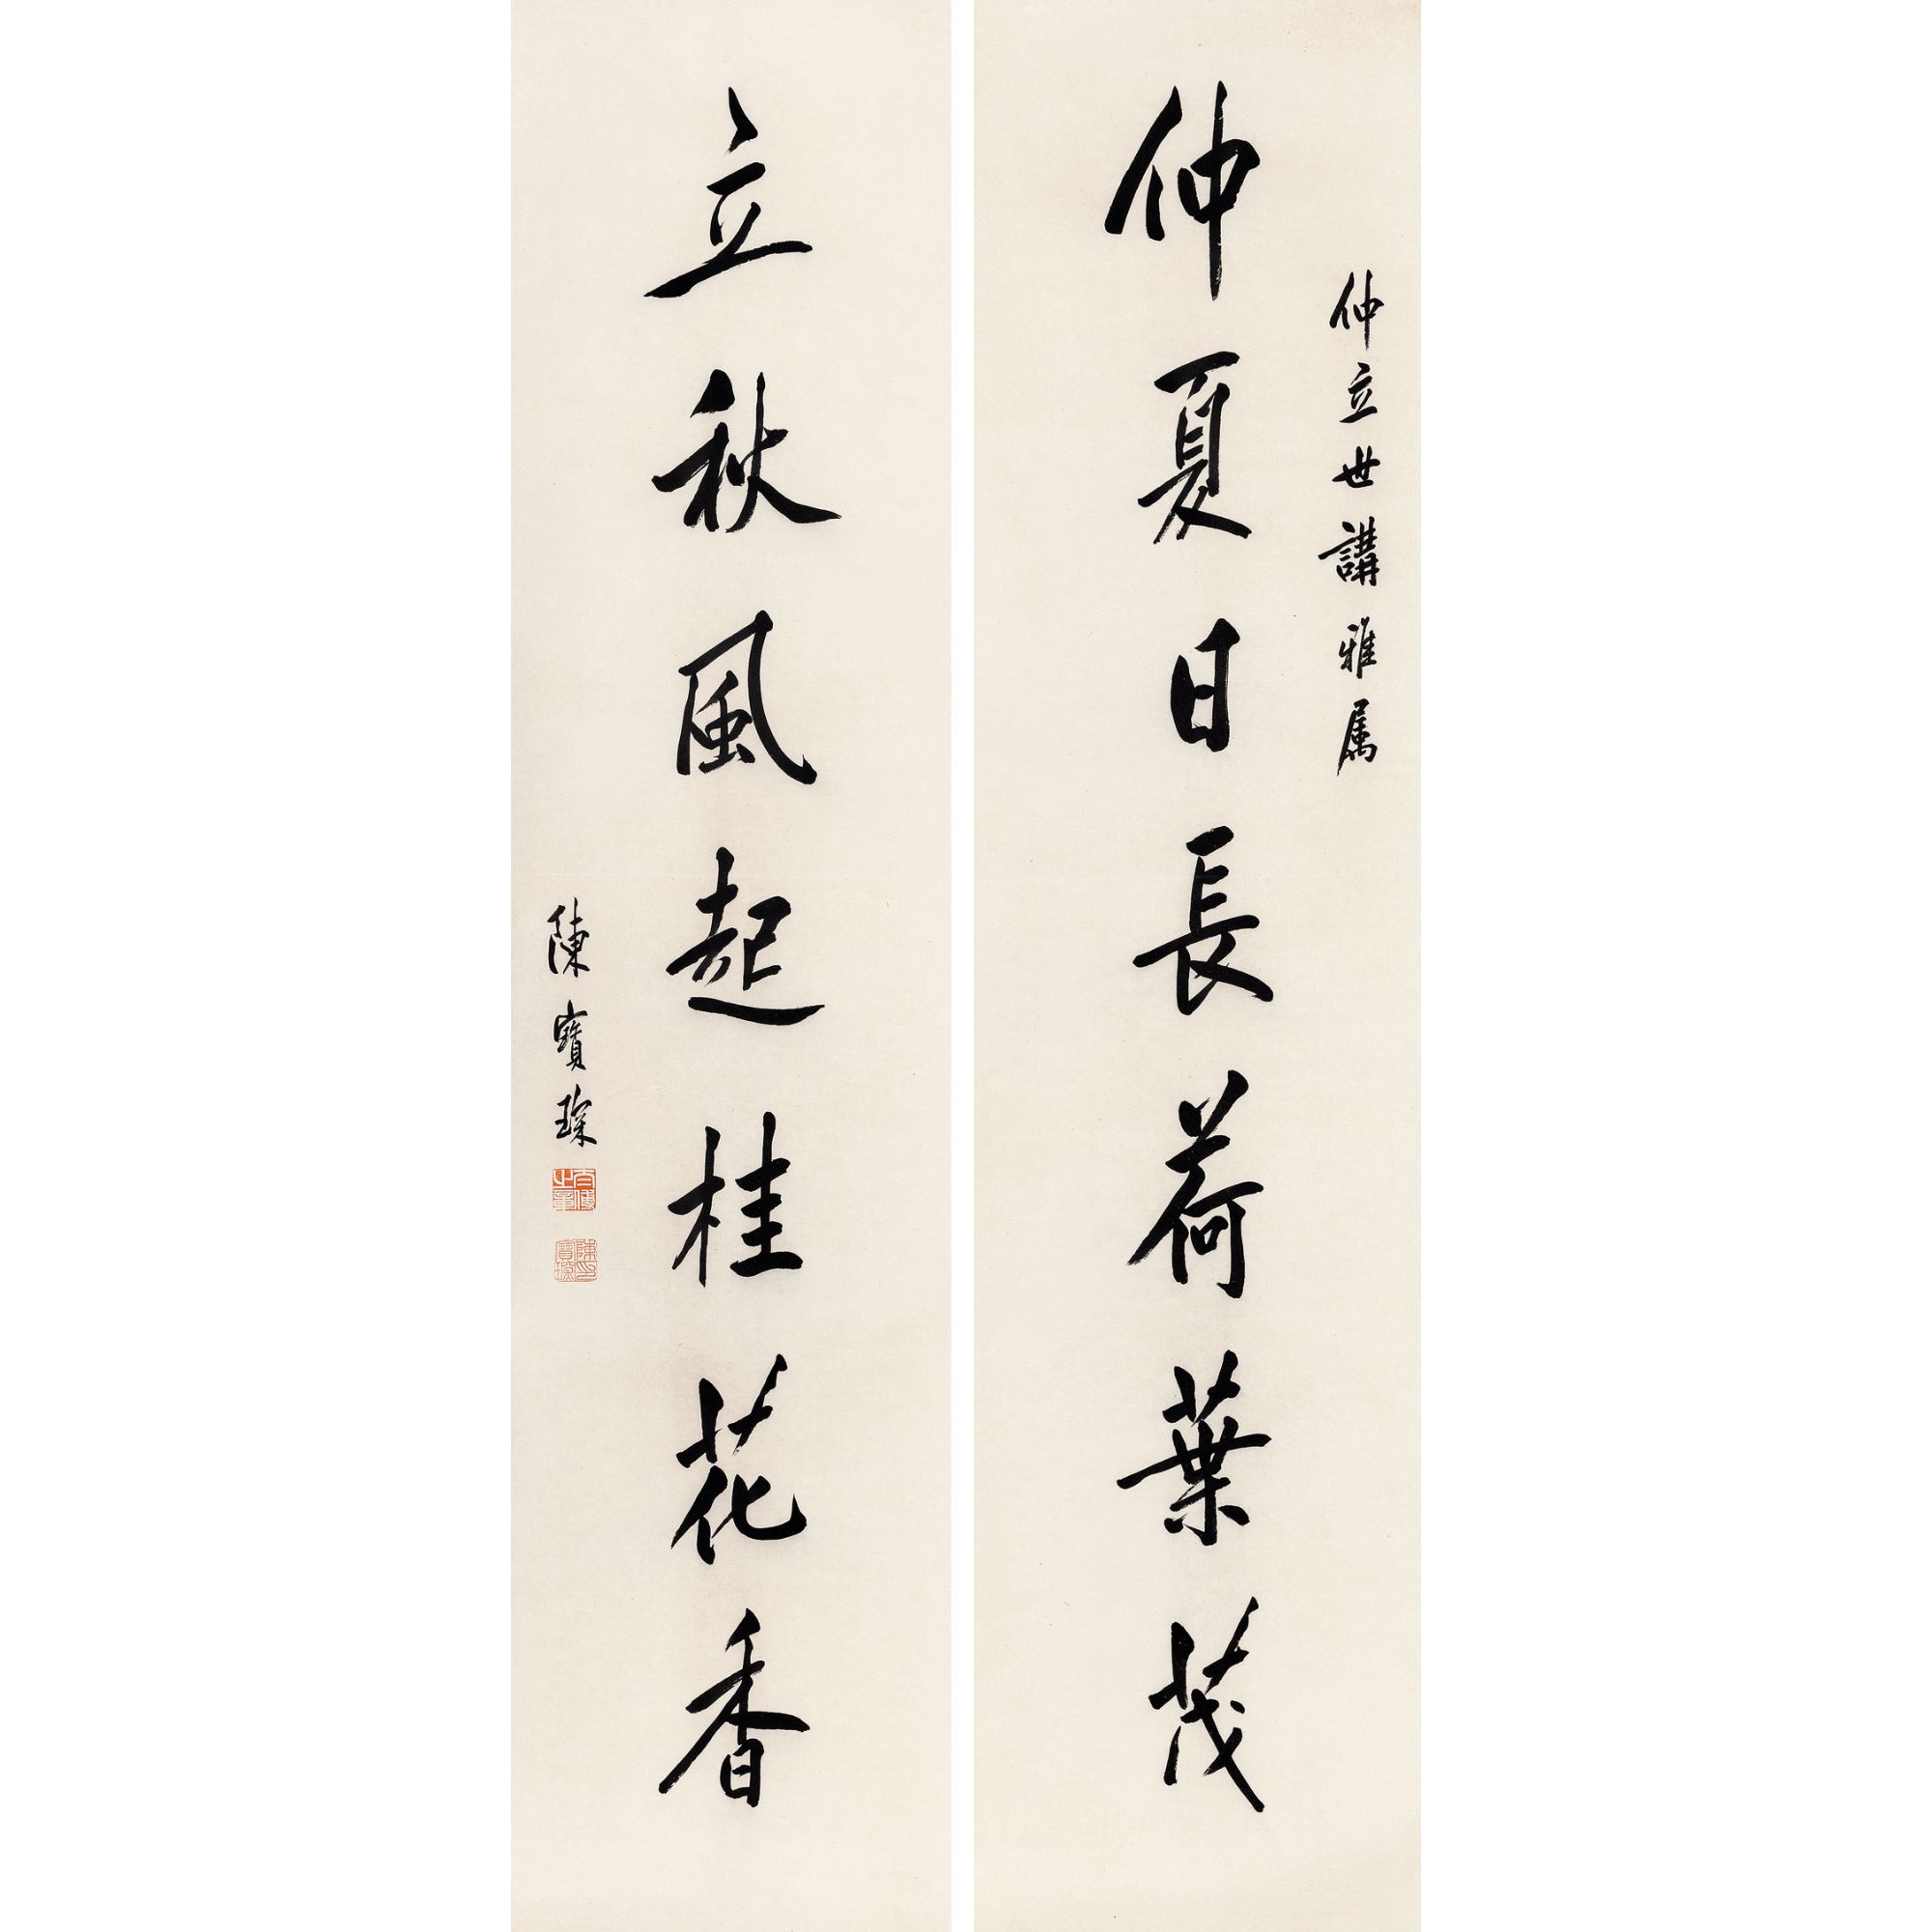 仲立世講雅属
仲夏日長荷葉茂
立秋風起桂花香
陳寶琛
太傅之章
陳印寶琛